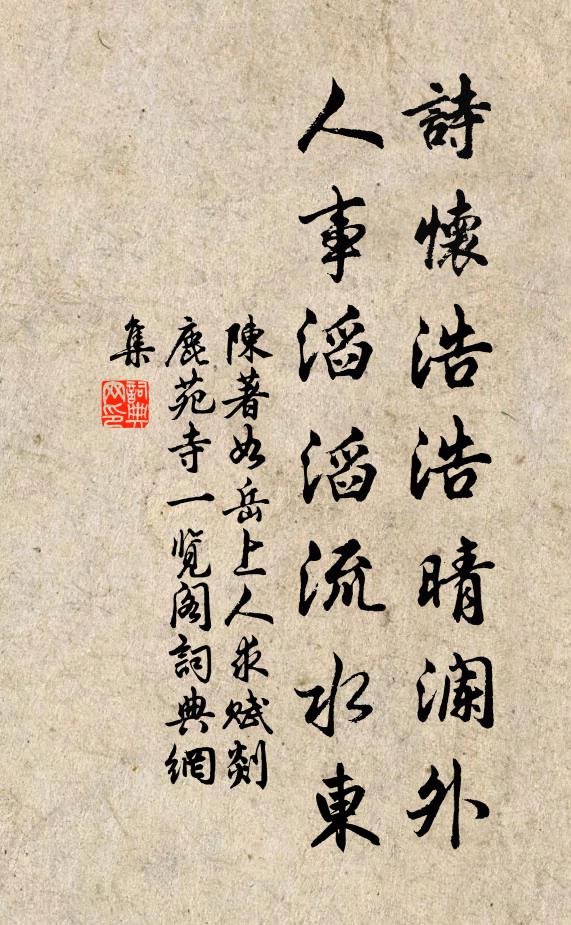 詩懷浩浩晴瀾外
人事滔滔流水東
陳著如岳上人求賦剡
鹿苑寺一覽閣詞典網
集
詞典网印